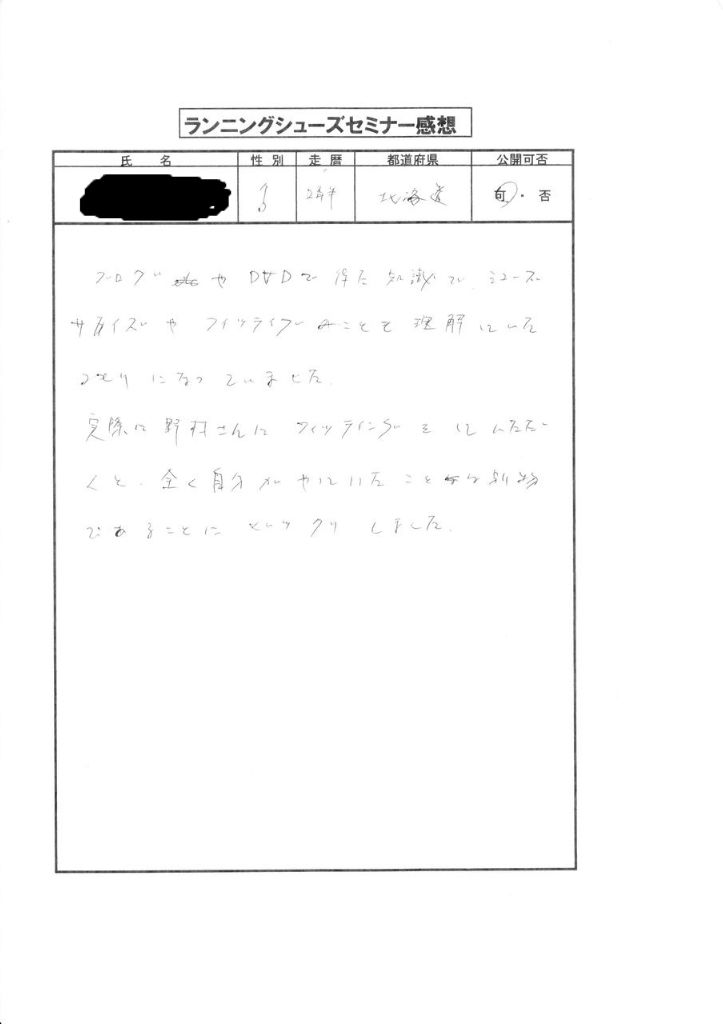 ランニングシューズセミナー感想
氏 名 性 別 走 暦 都道府県 公開可否
2年半 北海道 可・否
ブログやDVDで得た知識で、シューズ
サイズやフィッティングのことを理解していた
つもりになっていました。
実際に野村さんにフィッティングをしていただ
くと、全く自分がやっていたこととは別物
であることにビックリしました。